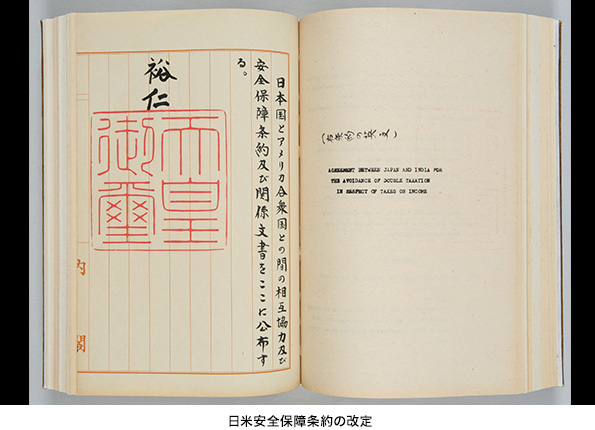 (右条約の英文)
AGREEMENT BETWEEN JAPAN AND INDIA FOR
THE AVOIDANCE OF DOUBLE TAXATION
IN RESPECT OF TAXES ON INCOME
日本国とアメリカ合衆国との間の相互協力及び
安全保障条約及び関係文書をここに公布す
る。
裕仁
天皇
御璽
内閣
日米安全保障条約の改定